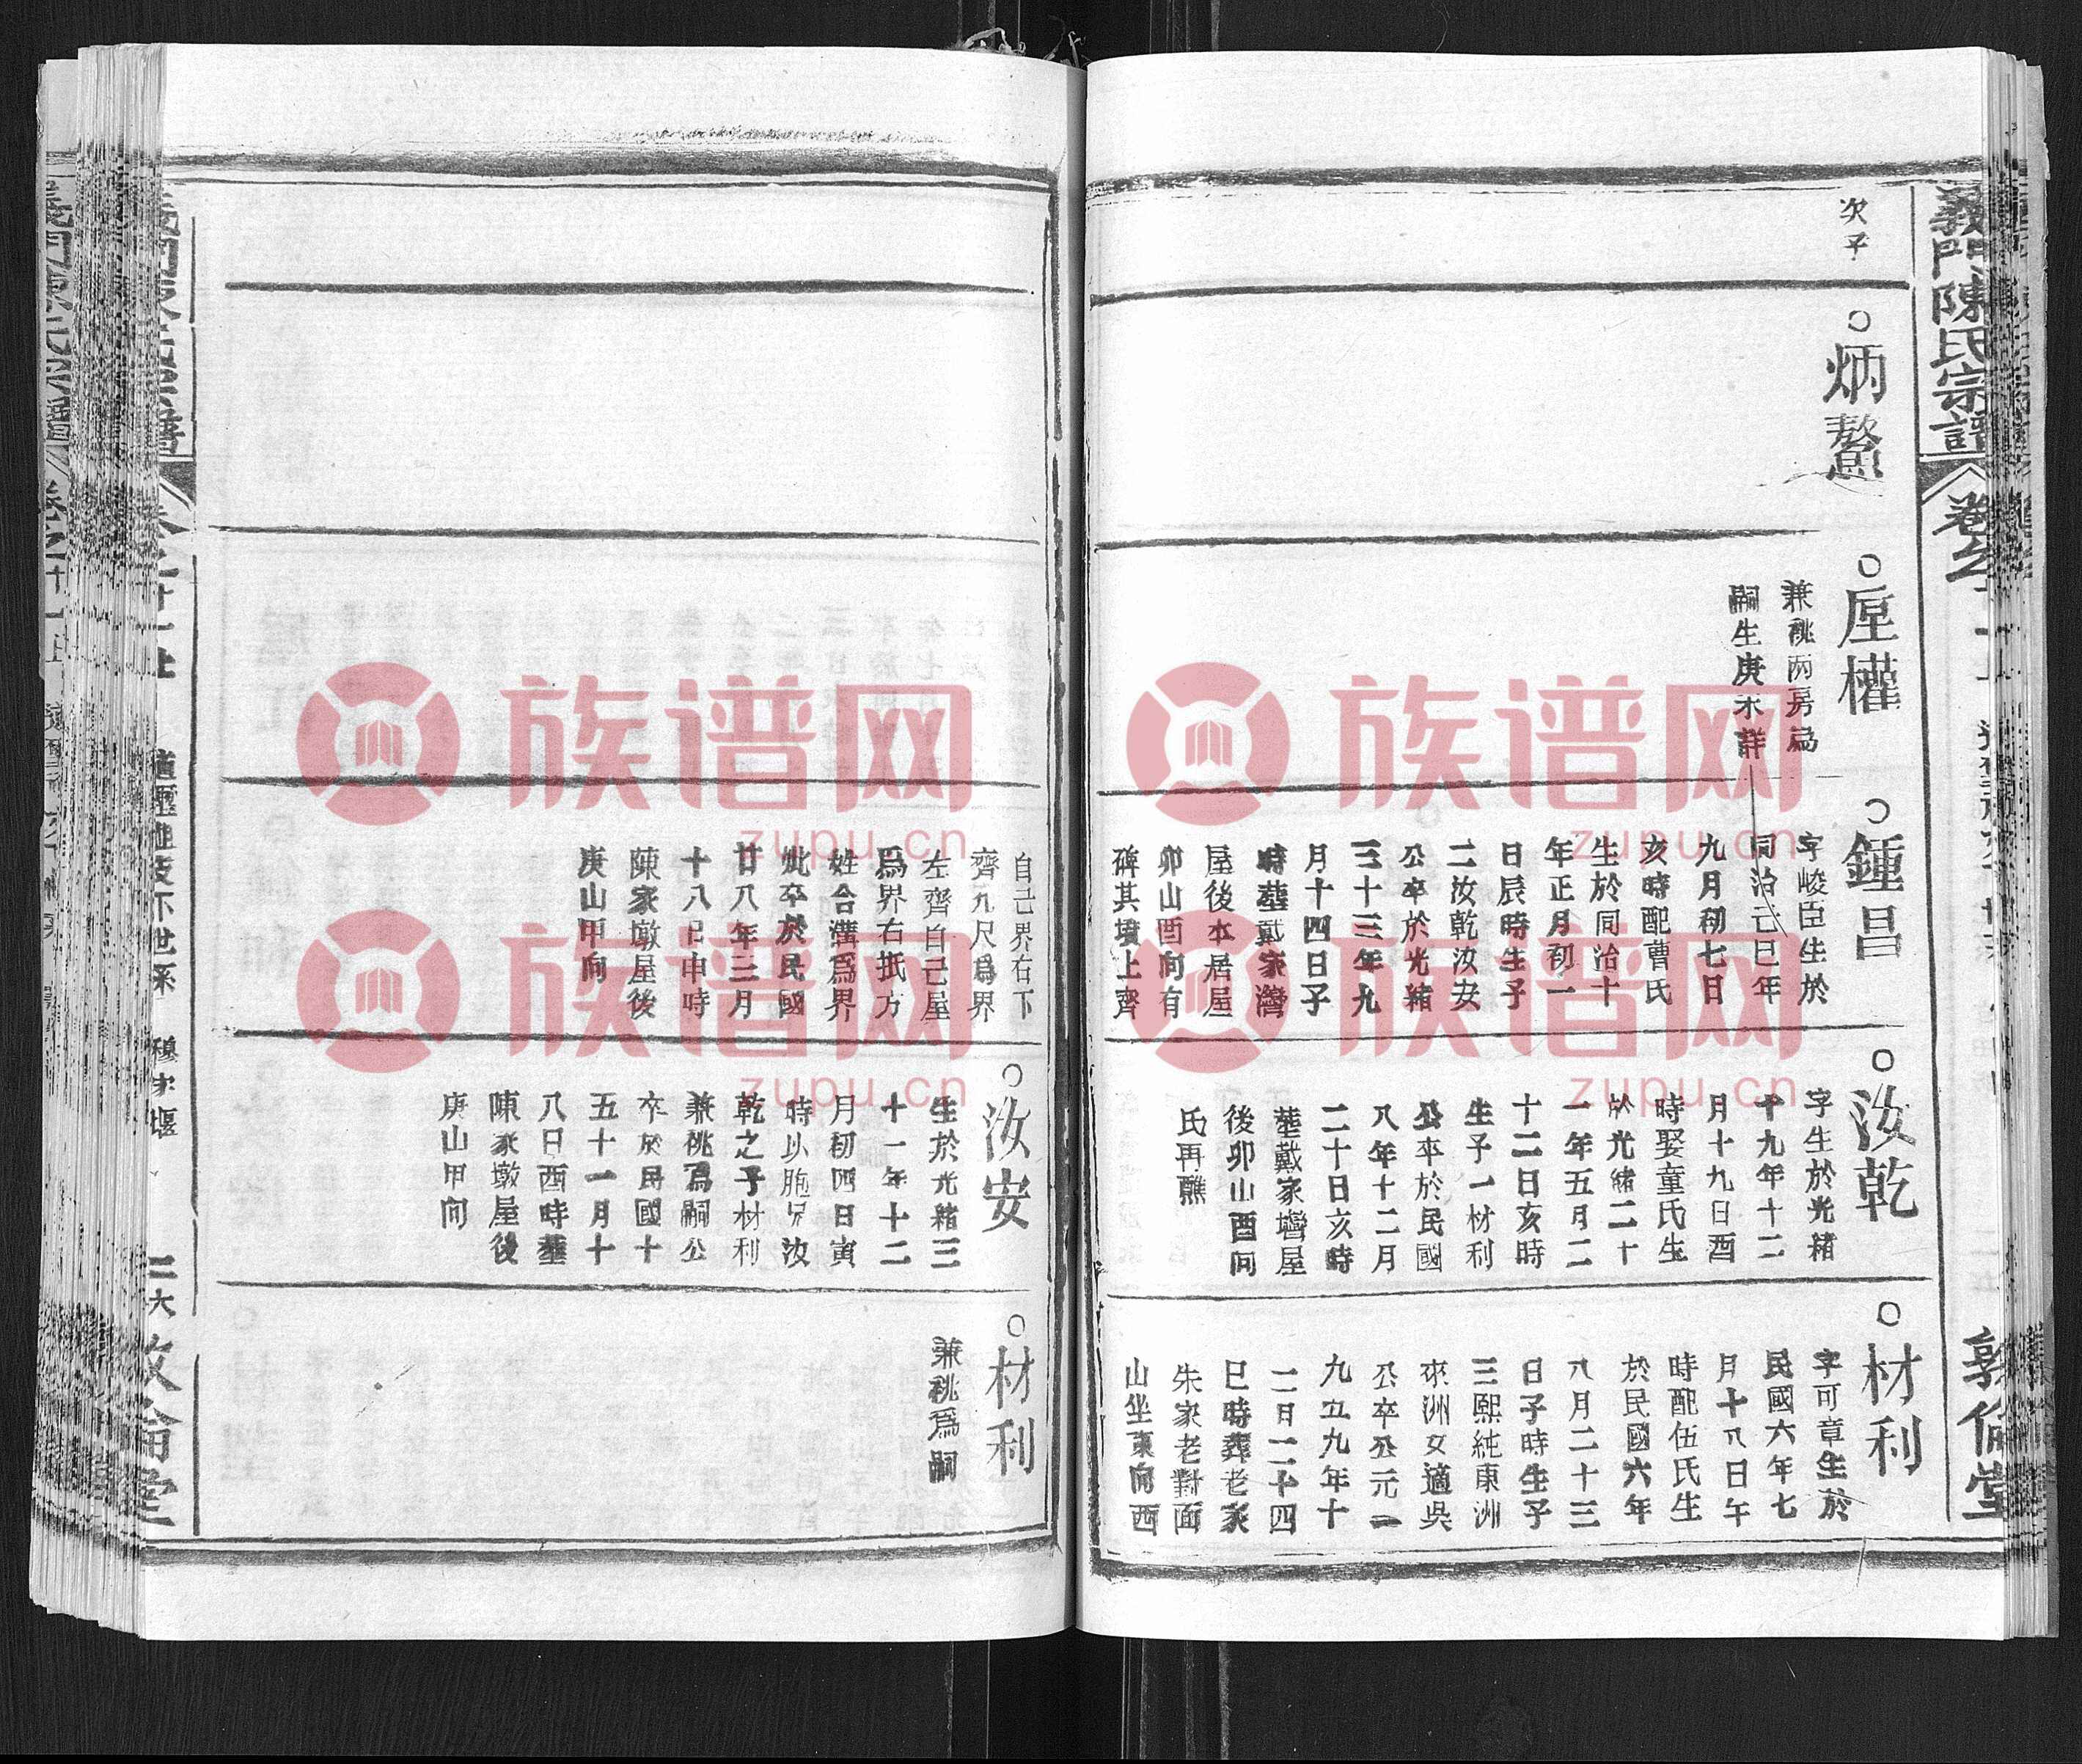 義門陳氏宗譜
敦倫堂
次子
炳鰲
垕權
兼祧兩房爲
嗣生庚未詳
鍾昌
字峻臣生於
同治己巳年
九月初七日
亥時配曹氏
生於同治十
年正月初一
日辰時生子
二汝乾汝安
公卒於光緒
三十三年九
月十四日子
時塟戴家灣
屋後本居屋
卯山酉向有
碑其墳上齊
汝乾
字生於光緒
十九年十二
月十九日酉
時娶童氏生
於光緒二十
一年五月二
十二日亥時
生子一材利
公卒於民國
八年十二月
二十日亥時
塟戴家灣屋
後卯山酉向
氏再醮
材利
字可章生於
民國六年七
月十八日午
時配伍氏生
於民國六年
八月二十三
日子時生子
三熙純東洲
來洲女適吳
公卒公元一
九五九年十
二月二十四
巳時葬老家
朱家老對面
山坐東向西
自己界右下
齊九尺爲界
左齊自己屋
爲界右抵方
姓合溝爲界
妣卒於民國
廿八年三月
十八巳申時
陳家墩屋後
庚山甲向
汝安
生於光緒三
十一年十二
月初四日寅
時以胞兄汝
乾之子材利
兼祧爲嗣公
卒於民國十
五十一月十
八日酉時塟
陳家墩屋後
庚山甲向
材利
兼祧爲嗣
二六
族谱网
zupu.cn
族谱网
zupu.cn
族谱网
zupu.cn
族谱网
zupu.cn